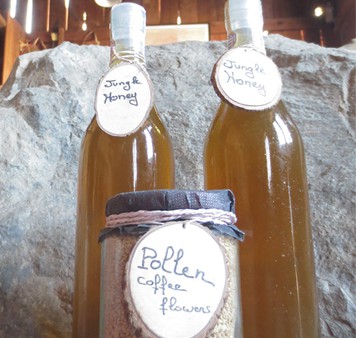 Jungle
Honey
Jungle
Honey
Pollen
coffee
flowers